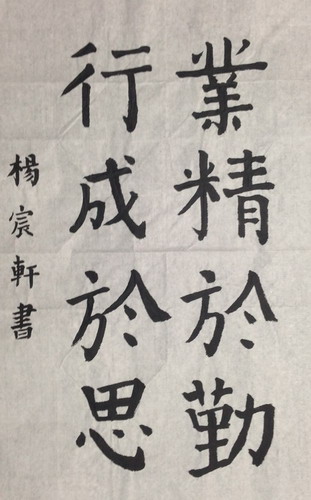 業精於勤
行成於思
楊宸軒書